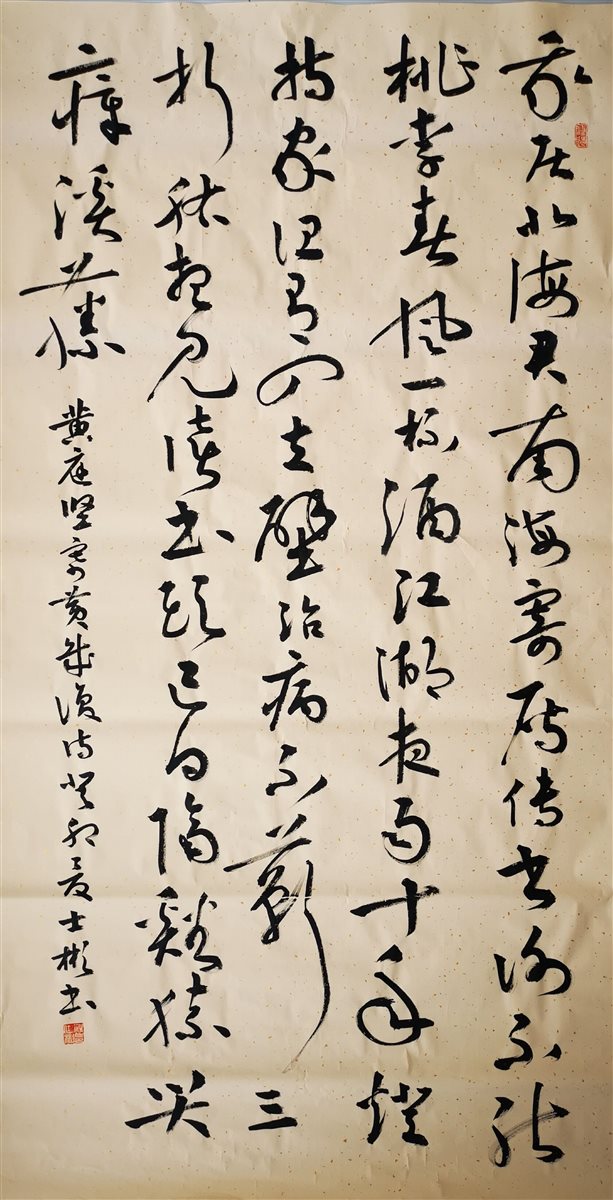 我居北海君南海寄雁传书谢不能
桃李春风一杯酒江湖夜雨十年燈
持家但有四立壁治病不蕲三
折肱想见读书头已白隔谿猿哭
瘴溪藤
黄庭坚寄黄几復诗癸卯夏士彬书